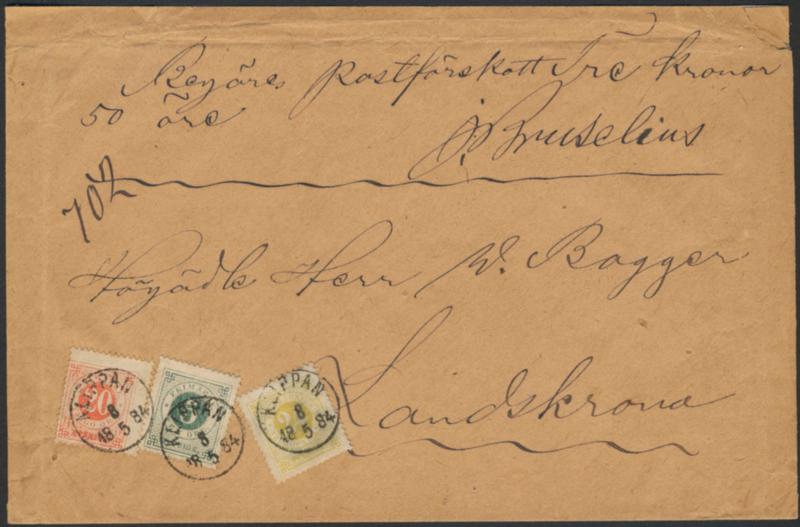 Begäres Postförskott Tre kronor
50 öre
Bruselius
702
Höyädle Herr W. Bagger
Landskrona
KLIPPAN
8
18 5 84
20
KLIPPAN
8
18 5 84
KLIPPAN
8
18 5 84